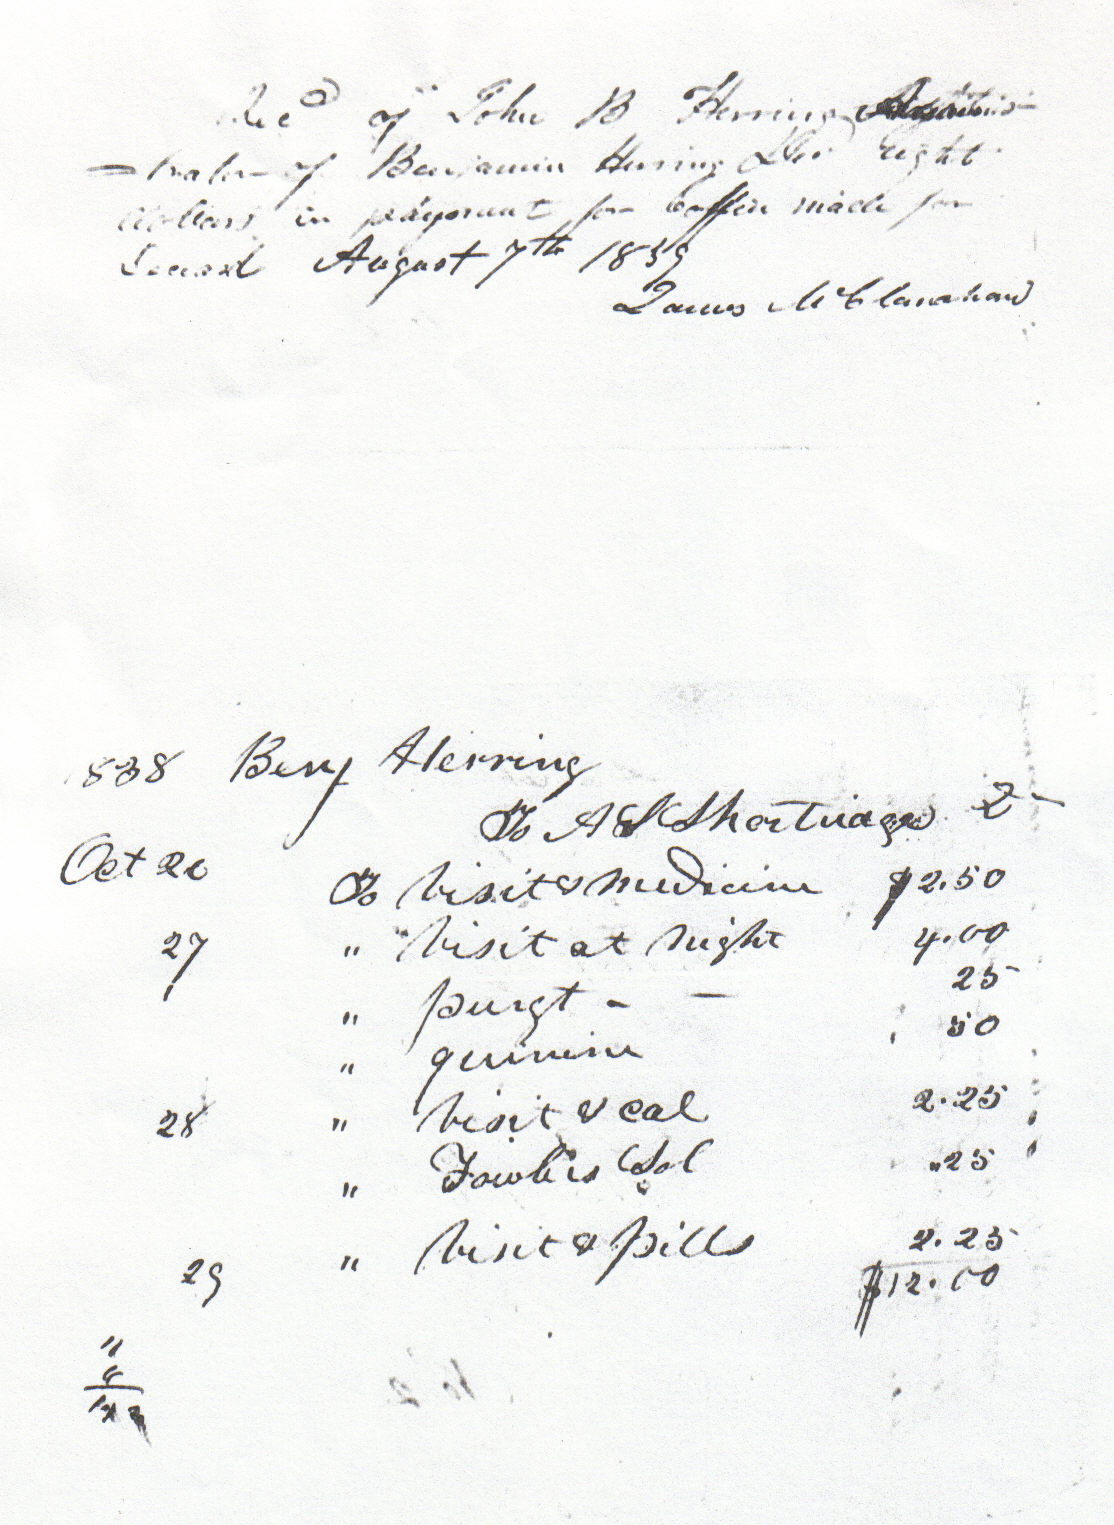 Recd of John B Herring Adminis-
-trator of Benjamin Herring Dec Eight
dollars in payment for Coffin made for
Deceasd August 7th 1839
James McClanahan
1838 Benj Herring
To A S Shortridge
Oct 20 To Visit & Medicine $2.50
27 " Visit at night 4.00
" purgt - - 25
" quinine 50
28 " Visit & cal 2.25
" Fowlers Sol "25
29 " Visit & pills 2.25
$12.00